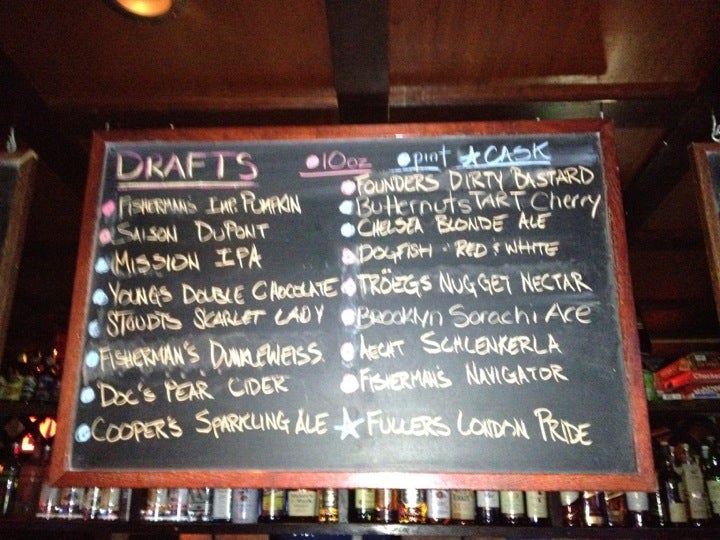 DRAFTS 10oz pint CASK
FISHERMAN'S IMP. PUMPKIN
SAISON DUPONT
MISSION IPA
YOUNGS DOUBLE CHOCOLATE
STOUDTS SCARLET LADY
FISHERMAN'S DUNKLEWEISS
DOC'S PEAR CIDER
COOPER'S SPARKLING ALE
FOUNDERS DIRTY BASTARD
Butternuts TART Cherry
CHELSEA BLONDE ALE
DOGFISH RED & WHITE
TRÖEGS NUGGET NECTAR
Brooklyn Sorachi Ace
AECHT SCHLENKERLA
FISHERMAN'S NAVIGATOR
FULLERS LONDON PRIDE